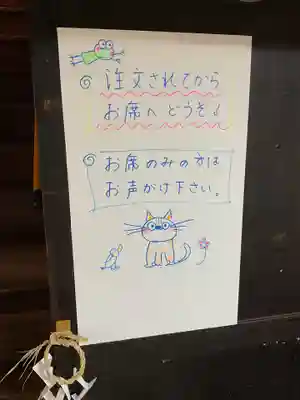 注文されてから
お席へどうぞ♪
お席のみの方は
お声がけ下さい。